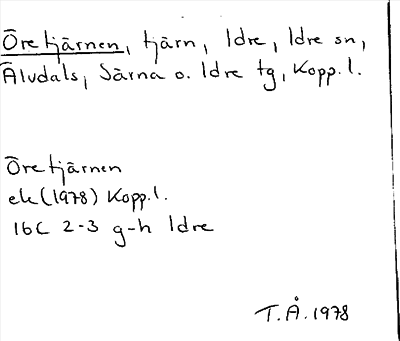 Öretjärnen, tjärn, Idre, Idre sn,
Älvdals, Särna o. Idre tg, Kopp. l.
Öretjärnen
ek (1978) Kopp. l.
16C 2-3 g-h Idre
T.Å. 1978